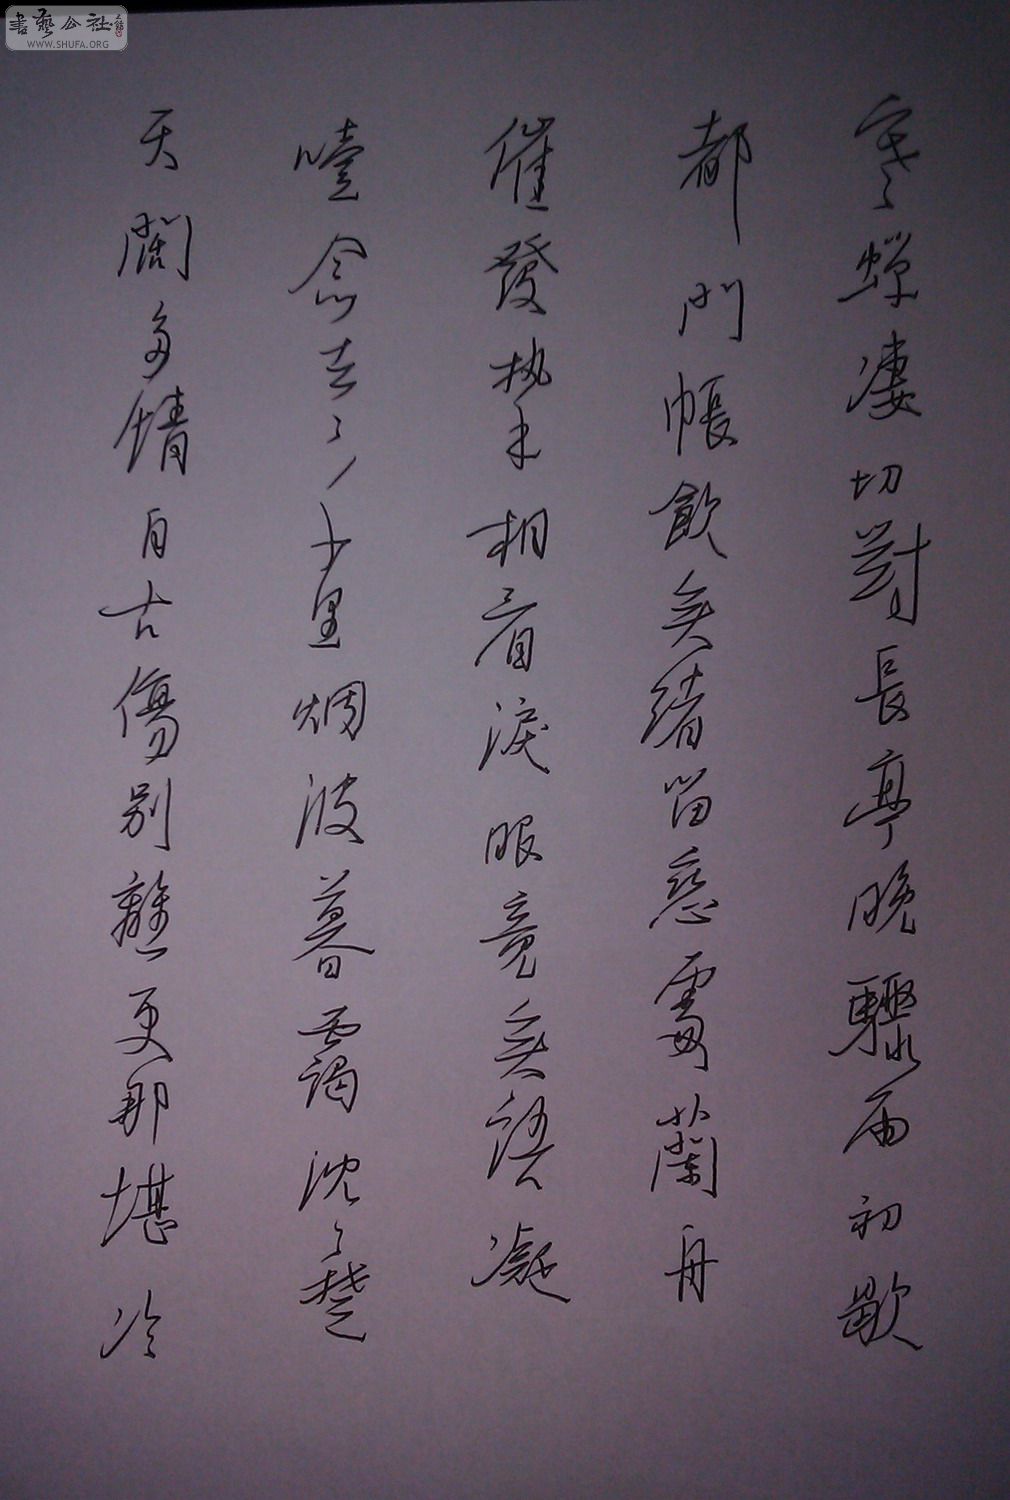 寒蟬凄切對長亭晚驟雨初歇
都門帳飲無緒留戀處蘭舟
催發執手相看淚眼竟無語凝
噎念去々千里烟波暮靄沈々楚
天闊多情自古傷別離更那堪冷
書藝公社
WWW.SHUFA.ORG